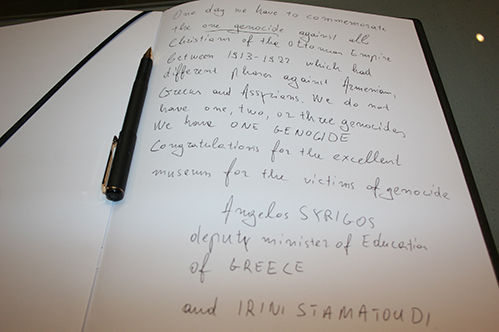 One day we have to commemorate
the one genocide against all
Christians of the Ottoman Empire
between 1913-1922 which had
different phases against Armenians,
Greeks and Assyrians. We do not
have one, two, or three genocides,
We have ONE GENOCIDE
Congratulations for the excellent
museum for the victims of genocide
Angelos SYRIGOS
deputy minister of Education
of GREECE
and IRINI STAMATOUDI